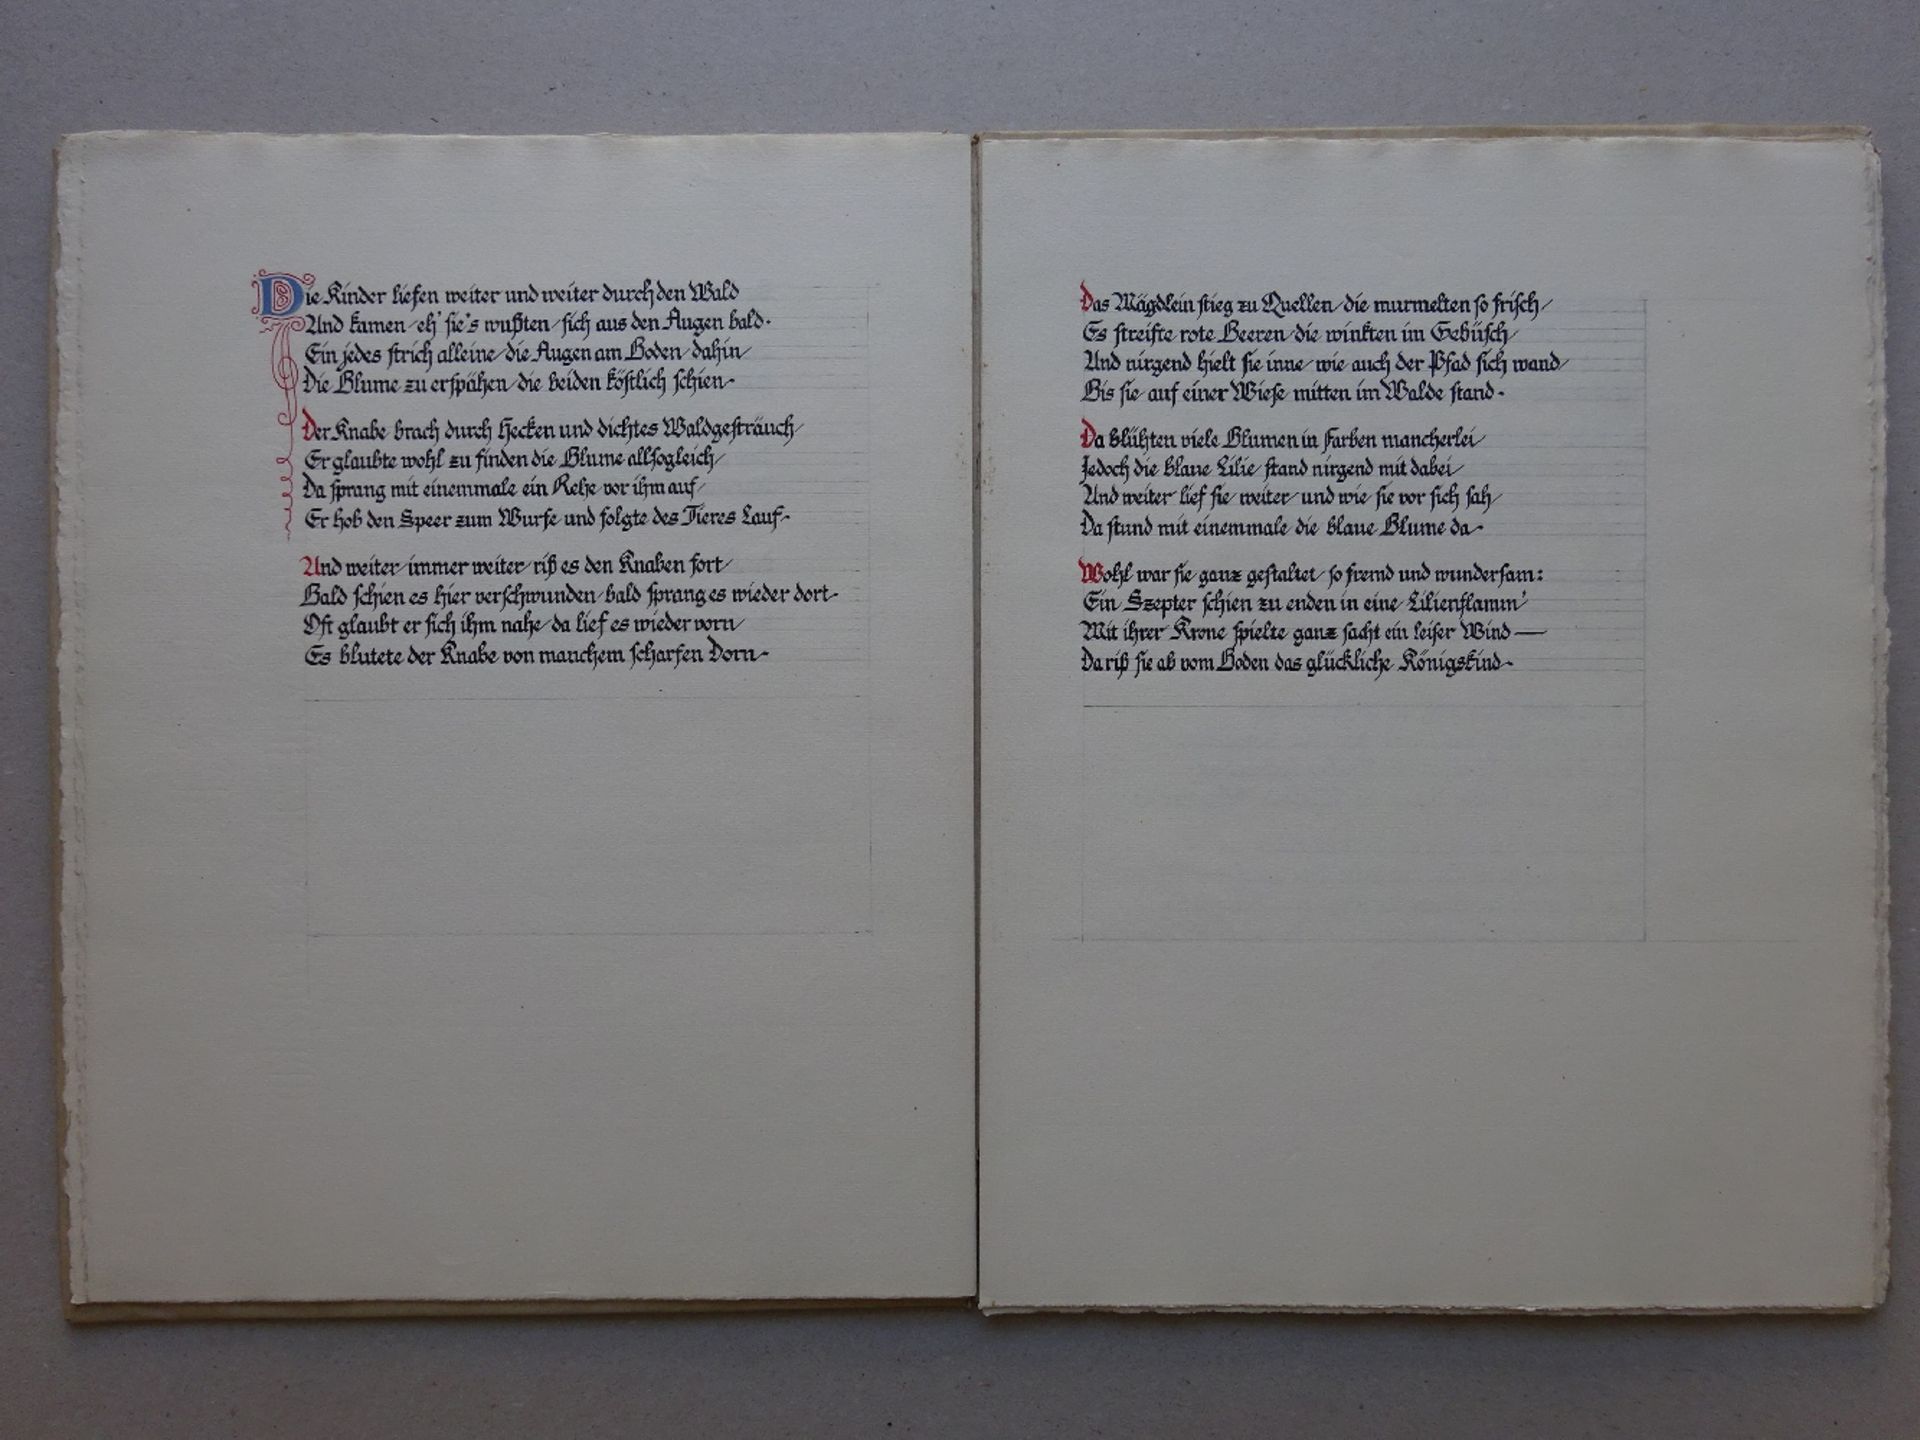 Die Kinder liefen weiter und weiter durch den Wald
And kamen/eh' sie's wußten/sich aus den Augen bald·
Ein jedes strich alleine/die Augen am Boden/dahin/
Die Blume zu erspähen/die beiden köstlich schien·
Der Knabe brach durch Hecken und dichtes Waldgesträuch/
Er glaubte wohl zu finden die Blume allsogleich/
Da sprang mit einemmale ein Rehe vor ihm auf/
Er hob den Speer zum Wurfe und folgte des Tieres Lauf·
Und weiter/immer weiter/riß es den Knaben fort/
Bald schien es hier verschwunden/bald sprang es wieder dort·
Oft glaubt er sich ihm nahe/da lief es wieder vorn/
Es blutete der Knabe von manchem scharfen Dorn·
Das Mägdlein stieg zu Quellen/die murmelten so frisch/
Es streifte rote Beeren/die winkten im Gebüsch/
Und nirgend hielt sie inne/wie auch der Pfad sich wand/
Bis sie auf einer Wiese mitten im Walde stand·
Da blühten viele Blumen in Farben mancherlei/
Jedoch die blaue Lilie stand nirgend mit dabei/
Und weiter lief sie/weiter/und wie sie vor sich sah/
Da stund mit einemmale die blaue Blume da·
Wohl war sie ganz gestaltet/so fremd und wundersam:
Ein Szepter schien zu enden in eine Lilienflamm'
Mit ihrer Krone spielte ganz sacht ein leiser Wind —
Da riß sie ab vom Boden das glückliche Königskind·